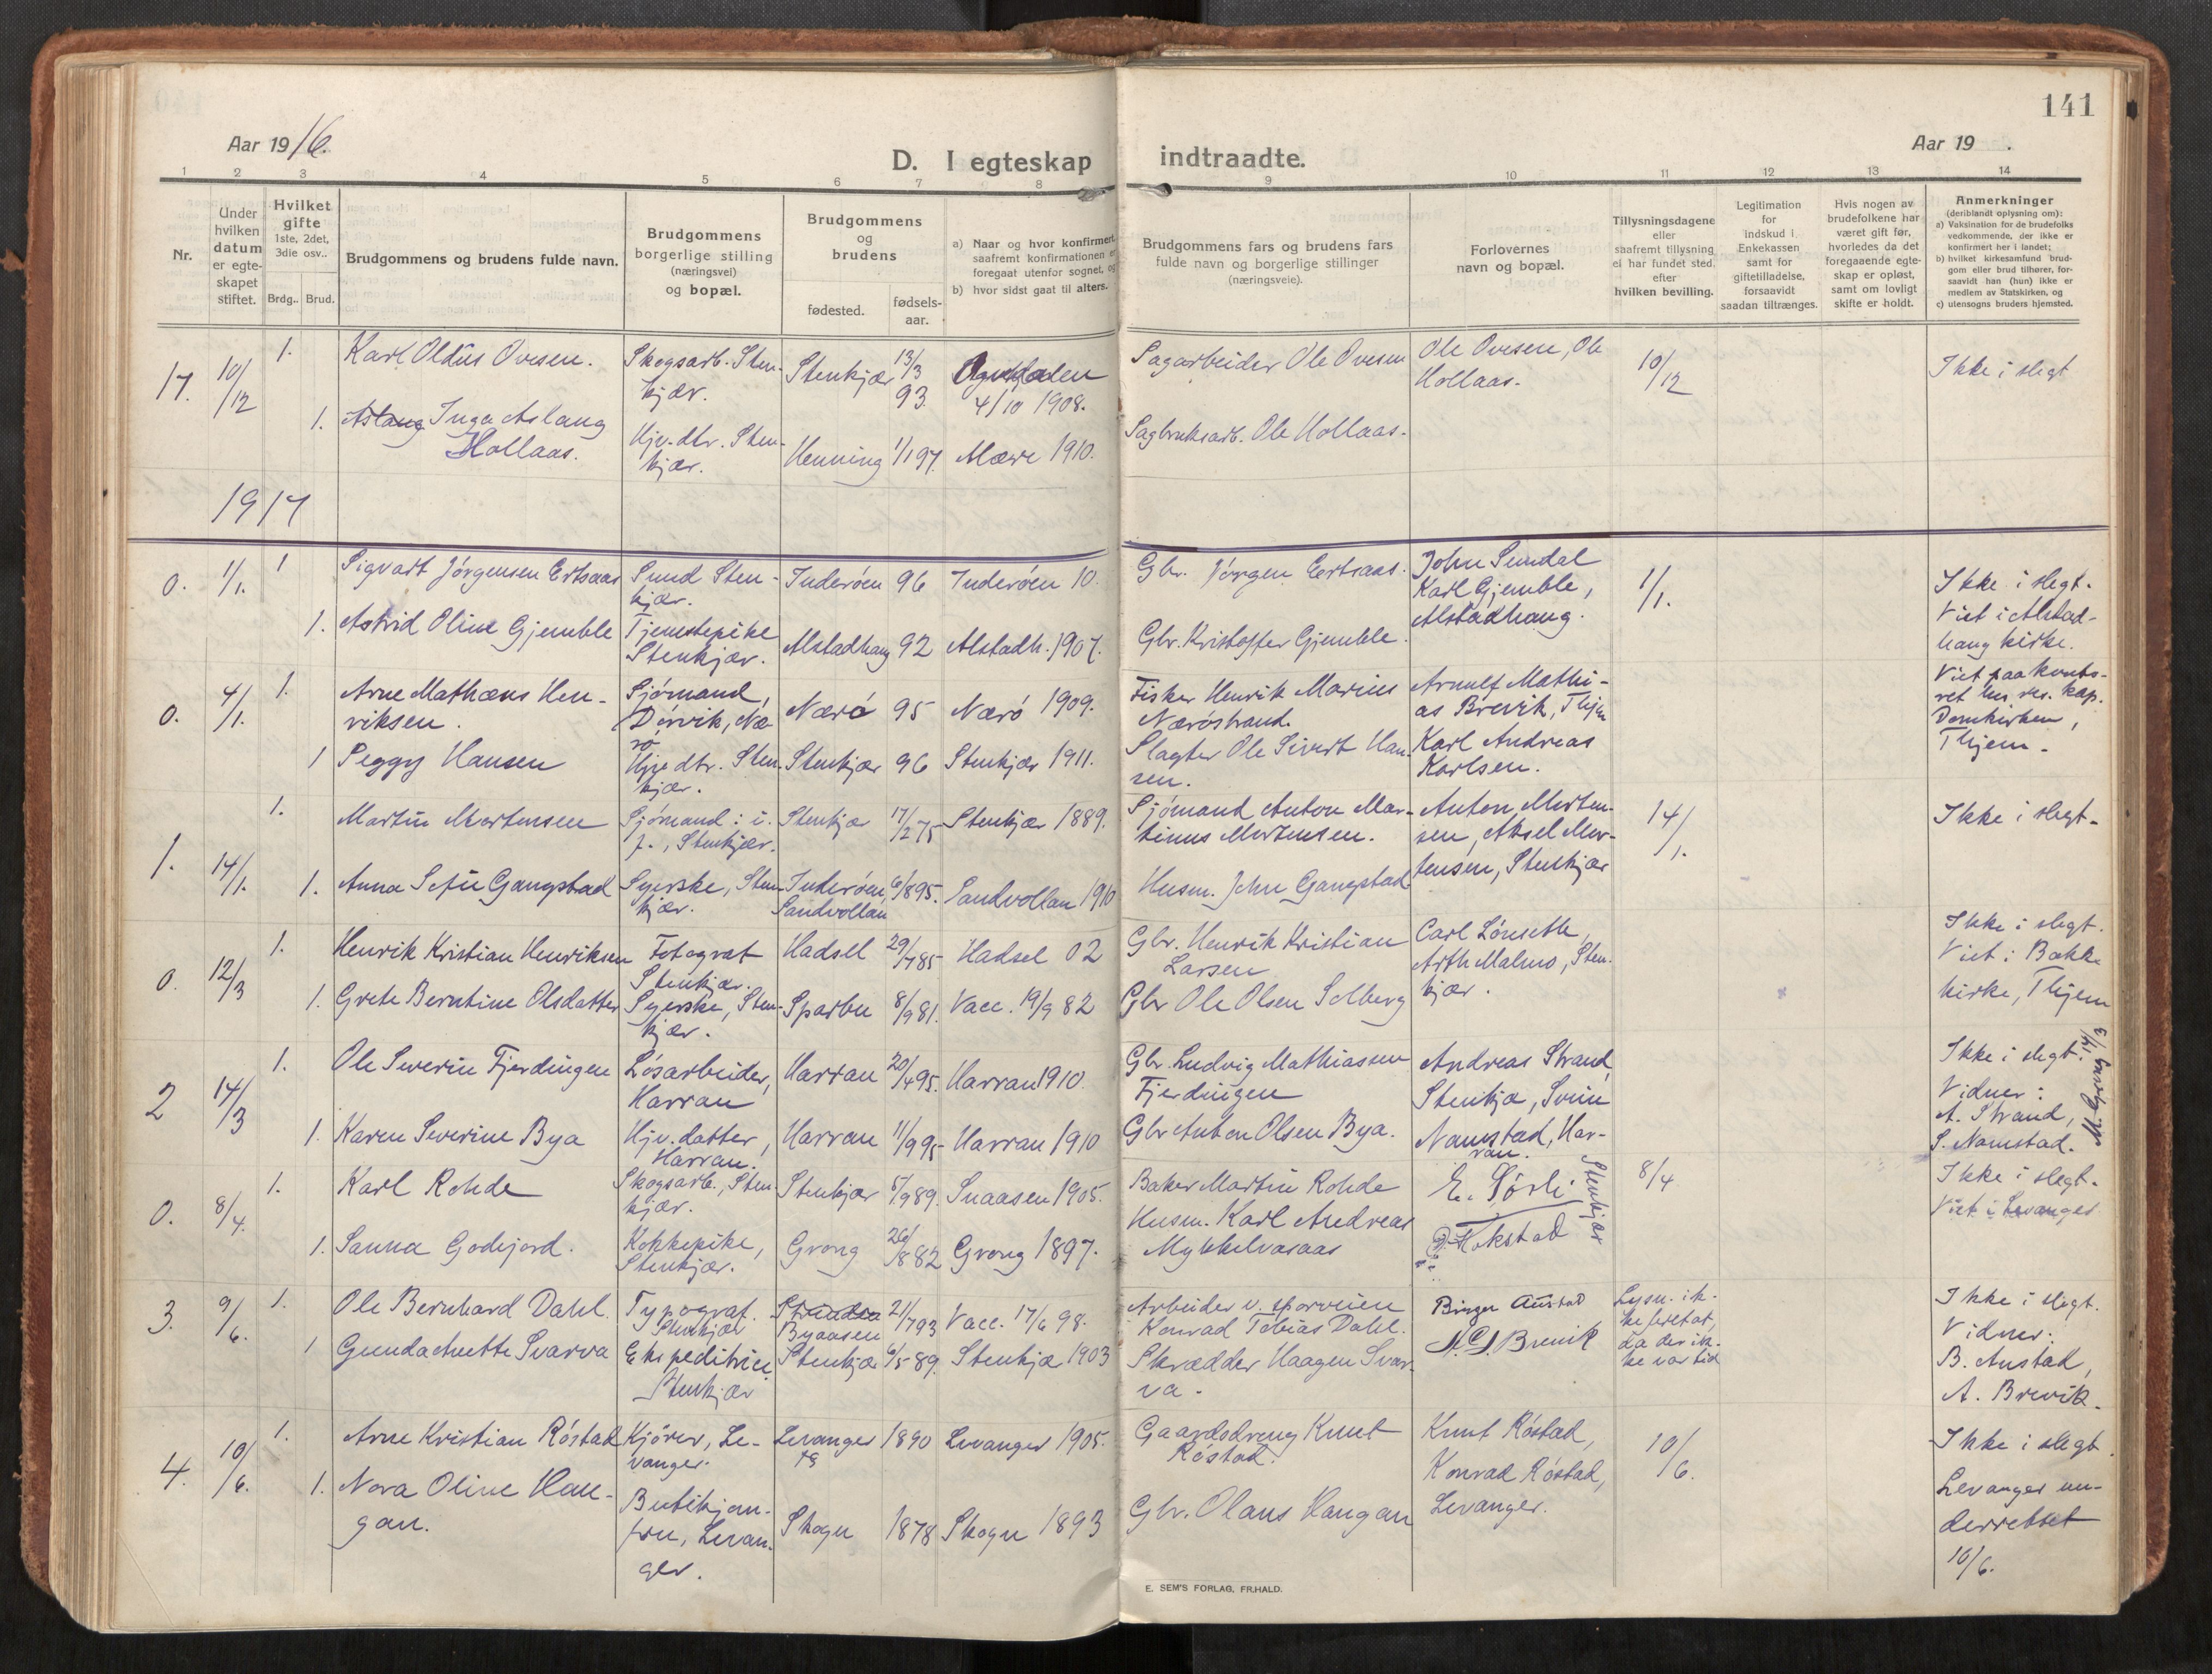 141
Aar 1916.
Aar 19 .
D. I egteskap indtraadte.
1 2 3 4 5 6 7 8 9 10 11 12 13 14
Nr.
Under hvilken datum er egte-skapet stiftet.
Hvilket gifte
1ste, 2det, 3die osv..
Brdg.. Brud.
Brudgommens og brudens fulde navn.
Brudgommens borgerlige stilling (næringsvei) og bopæl.
Brudgommens og brudens
fødested.
fødsels-aar.
a) Naar og hvor konfirmert saafremt konfirmationen er foregaat utenfor sognet, og
b) hvor sidst gaat til alters.
Brudgommens fars og brudens fars fulde navn og borgerlige stillinger (næringsveie).
Forlovernes navn og bopæl.
Tillysningsdagene eller saafremt tillysning ei har fundet sted, efter hvilken bevilling.
Legitimation for indskud i Enkekassen samt for giftetilladelse, forsaavidt saadan tiltrænges.
Hvis nogen av brudefolkene har været gift før, hvorledes da det foregaaende egte-skap er opløst, samt om lovligt skifte er holdt.
Anmerkninger
(deriblandt oplysning om):
a) Vaksination for de brudefolks vedkommende, der ikke er konfirmert her i landet;
b) hvilket kirkesamfund brud-gom eller brud tilhører, for-saavidt han (hun) ikke er medlem av Statskirken, og
c) utensogns bruders hjemsted.
17. 10/12 1. Karl Oldus Ovesen. Skogsarb. Sten-kjær. Stenkjær 13/3 93. 4/10 1908. Sagarbeider Ole Ovesen Ole Ovesen, Ole Hollaas. 10/12 Ikke i slegt
1. Aslaug Inga Aslaug Hollaas. Hjv. dtr. Sten-kjær. Henning 1/1 97. Mære 1910. Sagbruksarb. Ole Hollaas.
1917
0. 1/1. 1 Sigvart Jørgensen Ertsaas Sund Sten-kjær. Inderøen 96 Inderøen 10. Gbr. Jørgen Ertsaas. John Sundal Karl Gjemble, Alstadhaug. 1/1. Ikke i slegt. Viet i Alstad-haug kirke.
1. Astrid Oline Gjemble Tjenestepike Stenkjær. Alstadhaug 92 Alstadh. 1907. Gbr. Kristoffer Gjemble.
0. 4/1. 1. Arne Mathæus Hen-riksen. Sjømand, Dørvik, Næ-rø Nærø 95 Nærø 1909. Fisker Henrik Marius Nærøstrand. Arnulf Mathi-as Brevik, Thjem Karl Andreas Karlsen. Viet paa konto-ret hos res. kap. Domkirken, Thjem.
1 Peggy Hansen Hjv. dtr. Sten-kjær. Stenkjær 96 Stenkjær 1911. Slagter Ole Sivert Han-sen.
1. 14/1. 1. Martin Mortensen Sjømand: i. f., Stenkjær. Stenkjær 17/2 75 Stenkjær 1889. Sjømand Anton Mar-tinus Mortensen. Anton Morten-sen, Aksel Mor-tensen, Stenkjær 14/1. Ikke i slegt.
1. Anna Sofie Gangstad Syerske, Sten-kjær. Inderøen, Sandvollan 6/8 95. Sandvollan 1910 Husm. John Gangstad.
0. 12/3 1. Henrik Kristian Henriksen Fotograf Stenkjær. Hadsel 29/7 85 Hadsel 02 Gbr. Henrik Kristian Larsen Carl Lønseth, Arth Malmo, Sten-kjær. Ikke i slegt. Viet i Bakke kirke, Thjem
1. Grete Berntine Olsdatter Syerske, Sten-kjær. Sparbu 8/9 81. Vacc. 19/9 82 Gbr Ole Olsen Solberg
2 14/3 1. Ole Severin Fjerdingen Løsarbeider, Harran Harran 20/4 95. Harran 1910. Gbr. Ludvig Mathiassen Fjerdingen Andreas Strand, Stenkjæ, Svein Namstad, Har-ran. Ikke i slegt. Vidner: A. Strand, S. Namstad. M. Grong 14/3
1. Karen Severine Bya Hjv. datter, Harran. Harran 11/9 95 Harran 1910 Gbr Anton Olsen Bya.
0. 8/4. 1. Karl Rohde Skogsarb., Sten-kjær. Stenkjær 5/9 89. Snaasen 1905. Baker Martin Rohde E. Sørli Hokstad Stenkjær 8/4 Ikke i slegt. Viet i Levanger
1. Sanna Godejord. Kokkepike, Stenkjær. Grong 26/8 82 Grong 1897. Husm. Karl Andreas Mykkelvasaas
3. 9/6. 1. Ole Bernhard Dahl. Typograf. Stenkjær Strinden Byaasen 21/7 93 Vacc. 17/6 98. Arbeider v. sporveien Konrad Tobias Dahl. Birger Austad A. Brevik Lysn. ik-ke foretat, da der ik-ke var tid Ikke i slegt. Vidner: B. Austad, A. Brevik.
1 Gunda Anette Svarva Ekspeditrice Stenkjær Stenkjæ 6/5 89. Stenkjæ 1903 Skrædder Haagen Svar-va.
4. 10/6. 1. Arne Kristian Røstad Kjører, Le-vanger. Levanger 1890 Levanger 1905. Gaardsdreng Knut Røstad. Knut Røstad, Konrad Røstad, Levanger. 10/6. Ikke i slegt. Levanger un-derrettet 10/6.
1. Nora Oline Hau-gan. Butikjom-fru, Levan-ger. Skogn 1878 Skogn 1893 Gbr. Olaus Haugan
E. SEM'S FORLAG, FR.HALD.